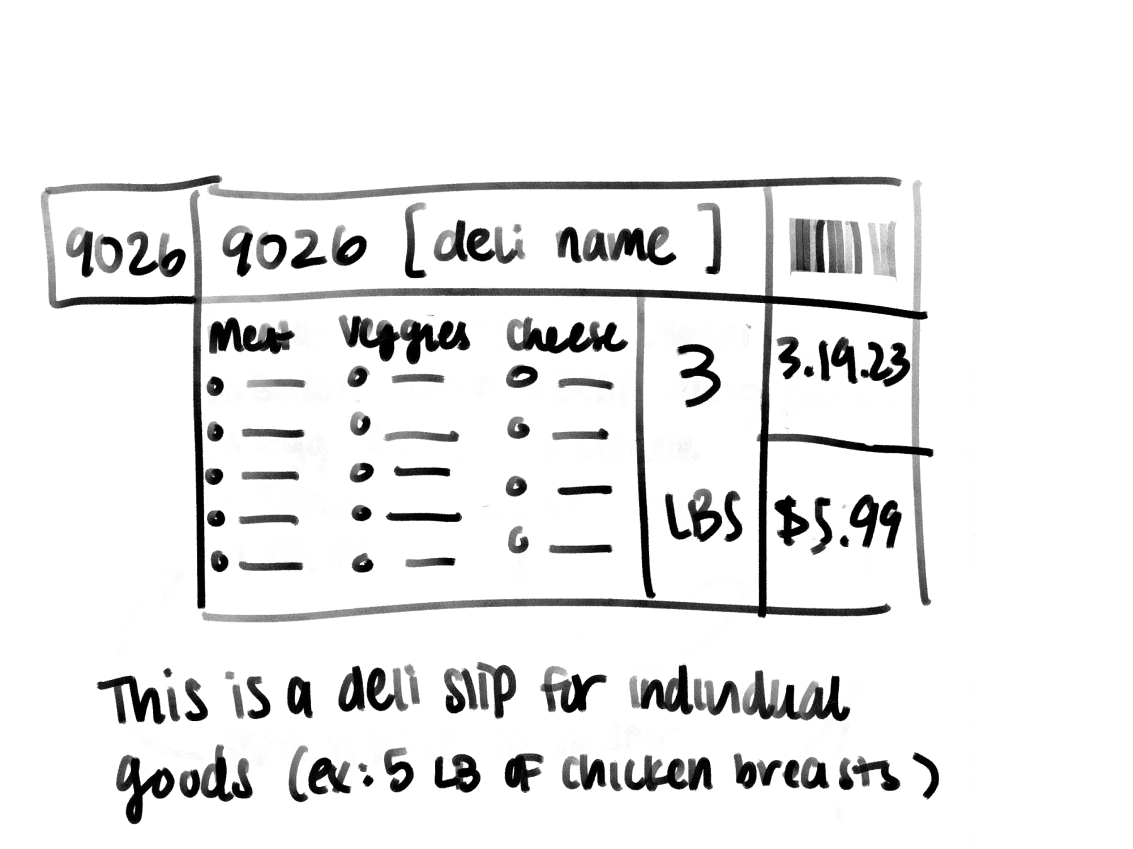 9026
9026 [deli name]
Meat Veggies Cheese
3
LBS
3.19.23
$5.99
This is a deli slip for individual
goods (ex: 5 LB OF chicken breasts)